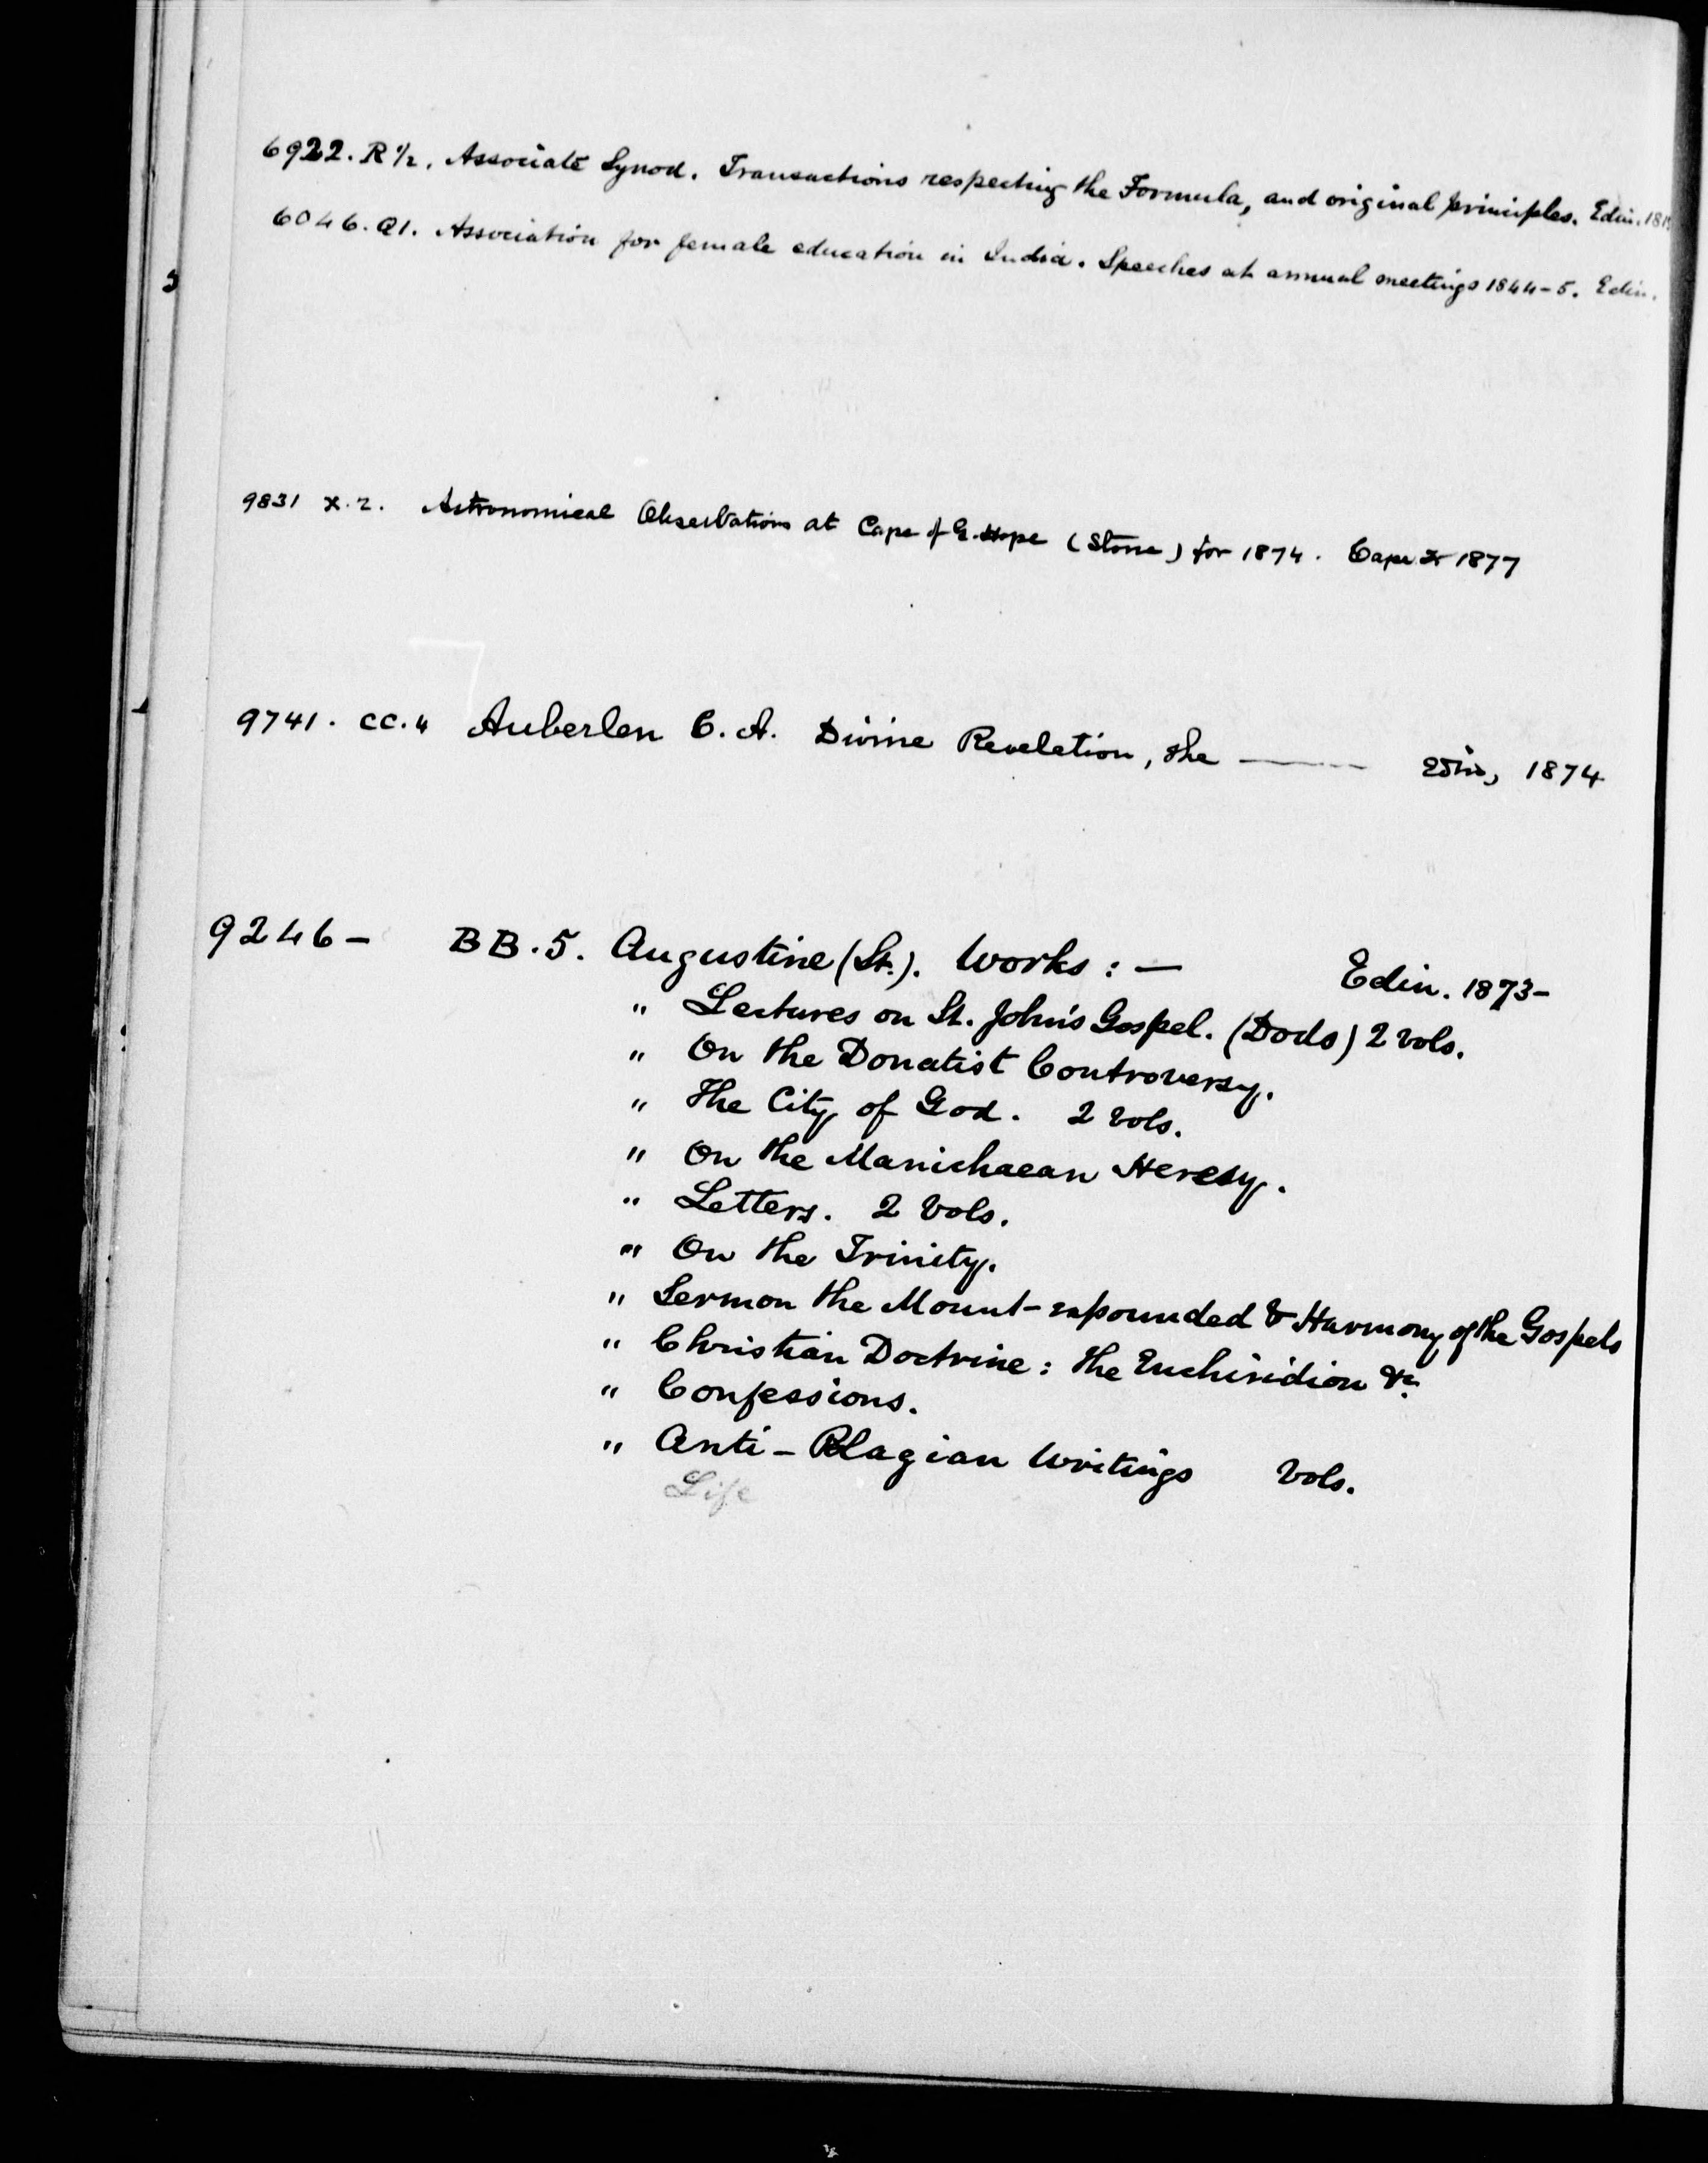 6922. R ½. Associate Synod. Transactions respecting the Formula, and original principles. Edin.
6046. Q1. Association for female education in India. Speeches at annual meetings 1844-5. Edin.
9831 X.2. Astronomical Observations at Cape of G. Hope (Stone) for 1874. Cape 1877
9741. CC.4 Auberlen C. A. Divine Revelation, the —— Edin, 1874
9246- BB.5. Augustine (St.). Works:— Edin. 1873-
" Lectures on St. John's Gospel. (Dods) 2 vols.
" On the Donatist Controversy.
" The City of God. 2 vols.
" On the Manichaean Heresy.
" Letters. 2 Vols.
" On the Trinity.
" Sermon the Mount-expounded & Harmony of the Gospels
" Christian Doctrine: the Enchiridion &c
" Confessions.
" Anti-Pelagian Writings Vols.
Life